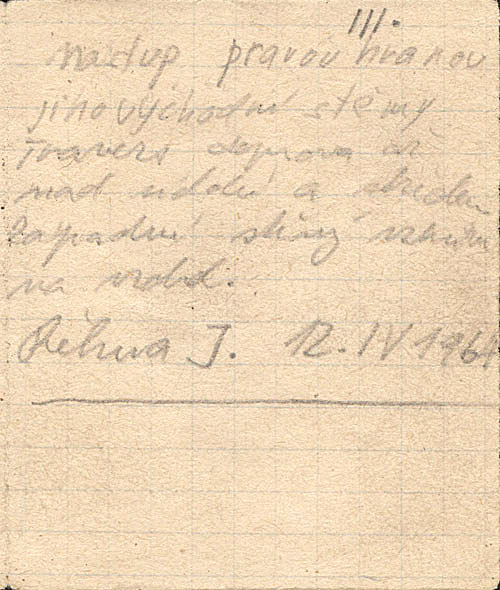 III.
Nástup pravou hranou
jihovýchodní stěny
Travers doprava až
nad údolí a středem
západní stěny vzhůru
na vrchol.
J. 12. IV 196